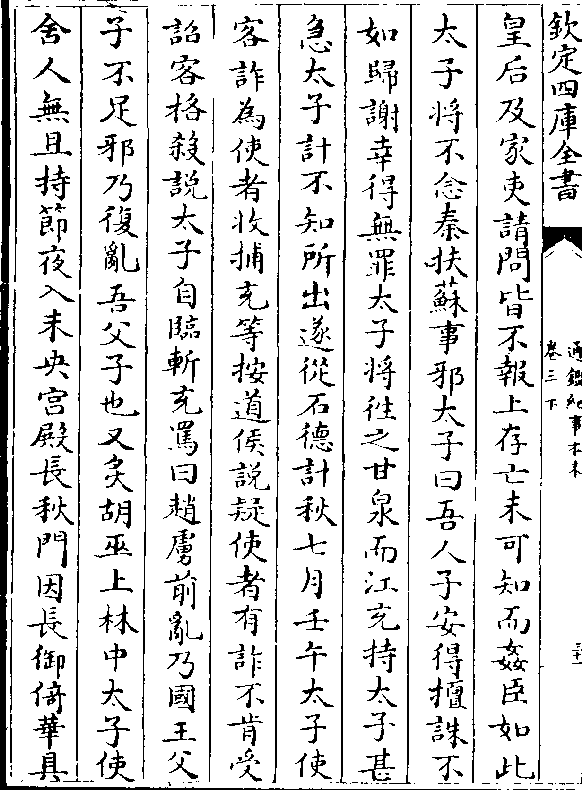 欽定四庫全書
通鑑紀事本末
卷三下
皇后及家吏請問皆不報上存亡未可知而姦臣如此
太子將不念秦扶蘇事邪太子曰吾人子安得擅誅不
如歸謝幸得無罪太子將往之甘泉而江充持太子甚
急太子計不知所出遂從石德計秋七月壬午太子使
客詐為使者收捕充等按道侯說疑使者有詐不肯受
詔客格殺說太子自臨斬充罵曰趙虜前亂乃國王父
子不足邪乃復亂吾父子也又炙胡巫上林中太子使
舍人無且持節夜入未央宮殿長秋門因長御倚華具